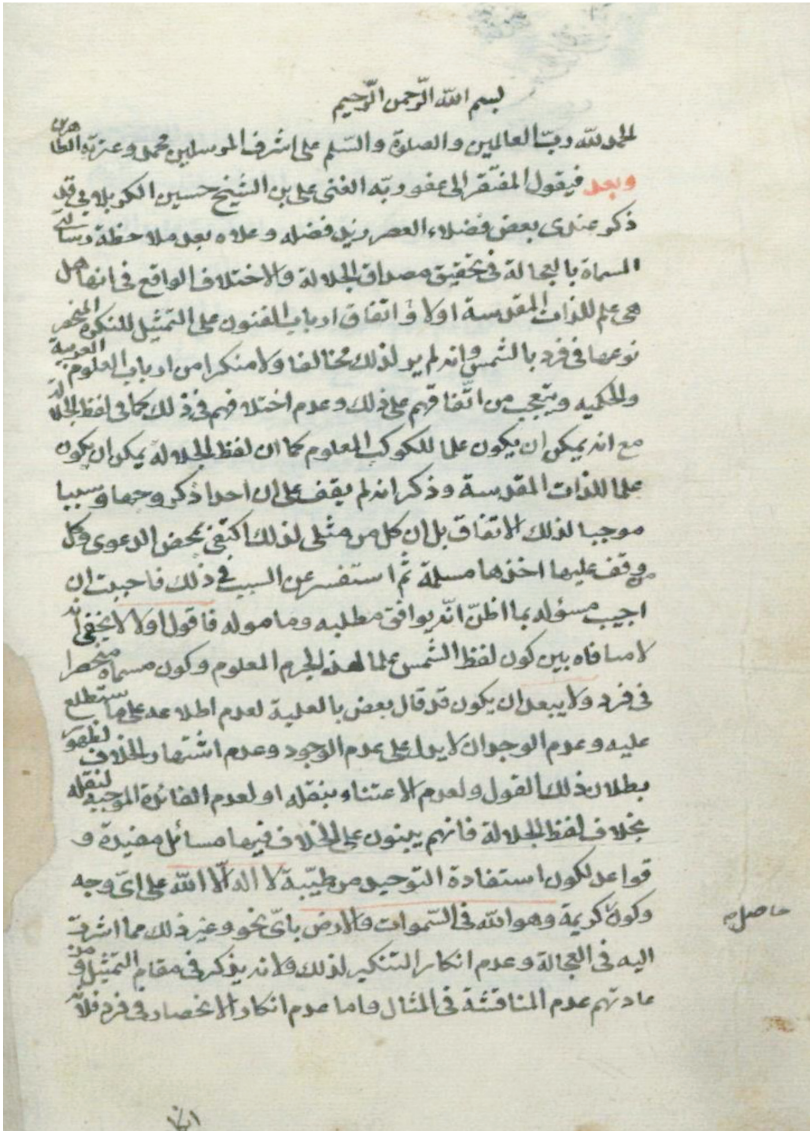 بسم الله الرّحمن الرّحيم
الحمد لله ربّ العالمين والصلوة والسّلم على اشرف المرسلين محمد وعترته الطاهرين
وبعد فيقول المفتقر الى عفو ربّه الغنى على بن الشيخ حسين الكربلاوى قد
ذكر عندى بعض فضلاء العصر زيد فضله وعلاه بعد ملاحظة رسالتى
المسماة بالعجالة فى تحقيق مصداق الجلالة والاختلاف الواقع فى انها هل
هى علم للذات المقدسة اولا و اتفاق ارباب الفنون على التمثيل للنكرة المنحصر
نوعها فى فرد بالشمس وانه لم ير لذلك مخالفا ولا منكرا من ارباب العلوم العربية
والحكميه ويتعجب من اتّفاقهم على ذلك وعدم اختلافهم فى ذلك كما فى لفظ الجلالة
مع انه يمكن ان يكون علما للكوكب المعلوم كما ان لفظ الجلالة يمكن ان يكون
علما للذات المقدسة وذكر انه لم يقف على ان احدا ذكر وجها وسببا
موجبا لذلك الاتفاق بل ان كل من مثّل لذلك اكتفى بمحض الدعوى وكل
من وقف عليها اخذها مسلمة ثم استفسر عن السبب فى ذلك فاحببت ان
اجيب مسؤله بما اظنّ انّه يوافق مطلبه ومأموله فاقول اولا لا يخفى انه
لا منافاه بين كون لفظ الشمس علما لهذا الجرم المعلوم وكون مسماه منحصرا
فى فرد ولا يبعد ان يكون قد قال بعض بالعلمية لعدم اطلاعه على ما ستطلع
عليه وعدم الوجدان لا يدل على عدم الوجود وعدم اشتهار الخلاف لظهور
بطلان ذلك القول ولعدم الاعتناء بنقله او لعدم الفائدة الموجبة لنقله
بخلاف لفظ الجلالة فانهم يبنون على الخلاف فيها مسائل مفيدة و
قواعد لكون استفادة التوحيد من طيّبة لا اله الّا الله على اىّ وجه
وكون كريمة وهو الله فى السّموات والارض باىّ نحو وغير ذلك مما اشرت
اليه فى العجالة وعدم انكار التنكير لذلك ولانه يذكر فى مقام التمثيل ومن
عادتهم عدم المناقشة فى المثال واما عدم انكار الانحصار فى فرد فلانّه
حاصل